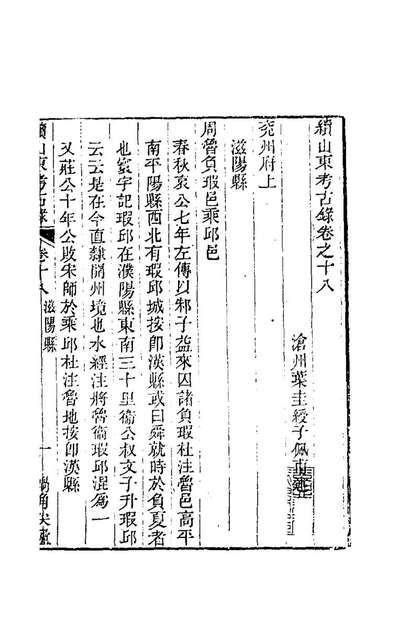 續山東考古錄卷之十八
滄州葉圭綬子佩
兖州府上
滋陽縣
周魯負瑕邑乘邱邑
春秋哀公七年左傳以邾子益來囚諸負瑕杜注魯邑高平
南平陽縣西北有瑕邱城按卽漢縣或曰舜就時於負夏者
也寰宇記瑕邱在濮陽縣東南三十里衞公叔文子升瑕邱
云云是在今直隸開州境也水經注將魯衞瑕邱混爲一
又莊公十年公敗宋師於乘邱杜注魯地按卽漢縣
續山東考古錄
卷十八
滋陽縣
一